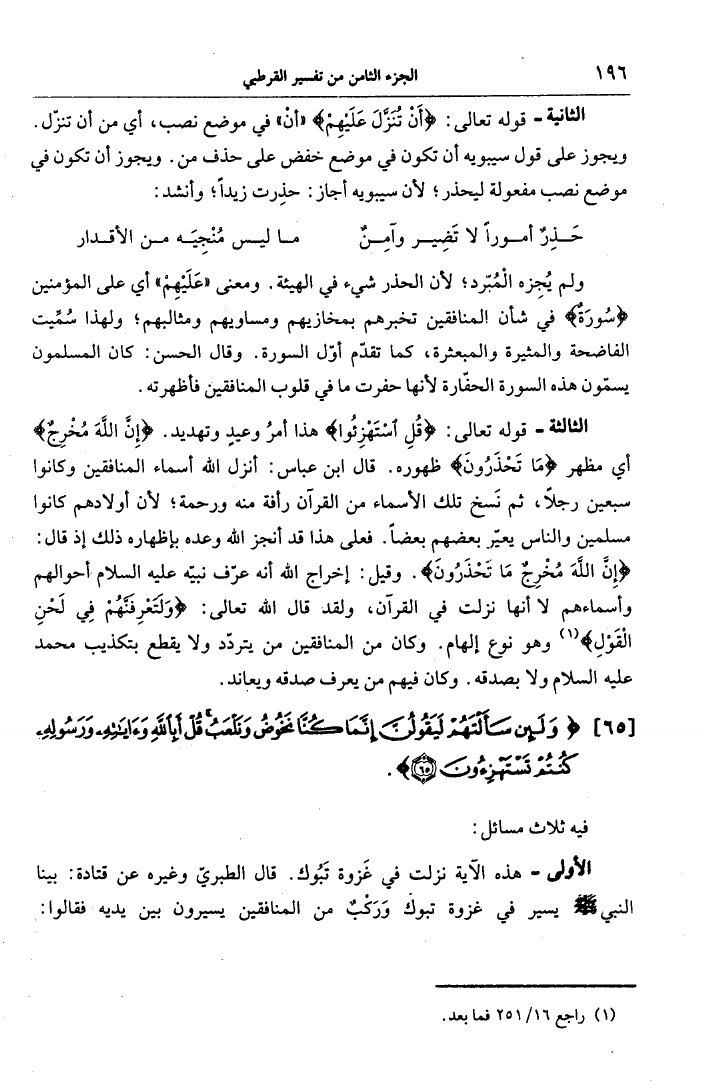 ١٩٦ الجزء الثامن من تفسير القرطبي
الثانية - قوله تعالى: ﴿أَنْ تُنَزَّلَ عَلَيْهِمْ﴾ «أنْ» في موضع نصب، أي من أن تنزّل.
ويجوز على قول سيبويه أن تكون في موضع خفض على حذف من. ويجوز أن تكون في
موضع نصب مفعولة ليحذر؛ لأن سيبويه أجاز: حذِرت زيداً؛ وأنشد:
حَــذِرٌ أمــوراً لا تَضِيــر وآمِــنٌ مــا ليــس مُنْجِيَــه مــن الأقــدار
ولم يُجِزه الْمُبّرد؛ لأن الحذر شيء في الهيئة. ومعنى «عَلَيْهِمْ» أي على المؤمنين
﴿سُورَةٌ﴾ في شأن المنافقين تخبرهم بمخازيهم ومساويهم ومثالبهم؛ ولهذا سُمِّيت
الفاضحة والمثيرة والمبعثرة، كما تقدّم أوّل السورة. وقال الحسن: كان المسلمون
يسمّون هذه السورة الحفّارة لأنها حفرت ما في قلوب المنافقين فأظهرته.
الثالثة - قوله تعالى: ﴿قُلِ ٱسْتَهْزِئُوا﴾ هذا أمرُ وعيدٍ وتهديد. ﴿إِنَّ اللَّهَ مُخْرِجٌ﴾
أي مظهر ﴿مَا تَحْذَرُونَ﴾ ظهوره. قال ابن عباس: أنزل الله أسماء المنافقين وكانوا
سبعين رجلاً، ثم نَسخ تلك الأسماء من القرآن رأفة منه ورحمة؛ لأن أولادهم كانوا
مسلمين والناس يعيّر بعضهم بعضاً. فعلى هذا قد أنجز الله وعده بإظهاره ذلك إذ قال:
﴿إِنَّ اللَّهَ مُخْرِجٌ مَا تَحْذَرُونَ﴾. وقيل: إخراج الله أنه عرّف نبيّه عليه السلام أحوالهم
وأسماءهم لا أنها نزلت في القرآن، ولقد قال الله تعالى: ﴿وَلَتَعْرِفَنَّهُمْ فِي لَحْنِ
الْقَوْلِ﴾(١) وهو نوع إلهام. وكان من المنافقين من يتردّد ولا يقطع بتكذيب محمد
عليه السلام ولا بصدقه. وكان فيهم من يعرف صدقه ويعاند.
[٦٥] ﴿ وَلَئِن سَأَلْتَهُمْ لَيَقُولُنَّ إِنَّمَا كُنَّا نَخُوضُ وَنَلْعَبُ قُلْ أَبِاللَّهِ وَءَايَٰتِهِۦ وَرَسُولِهِۦ
كُنتُمْ تَسْتَهْزِءُونَ ٦٥﴾.
فيه ثلاث مسائل:
الأولى - هذه الآية نزلت في غَزوة تَبُوك. قال الطبريّ وغيره عن قتادة: بينا
النبي ﷺ يسير في غزوة تبوك وَرَكْبٌ من المنافقين يسيرون بين يديه فقالوا:
(١) راجع ٢٥١/١٦ فما بعد.